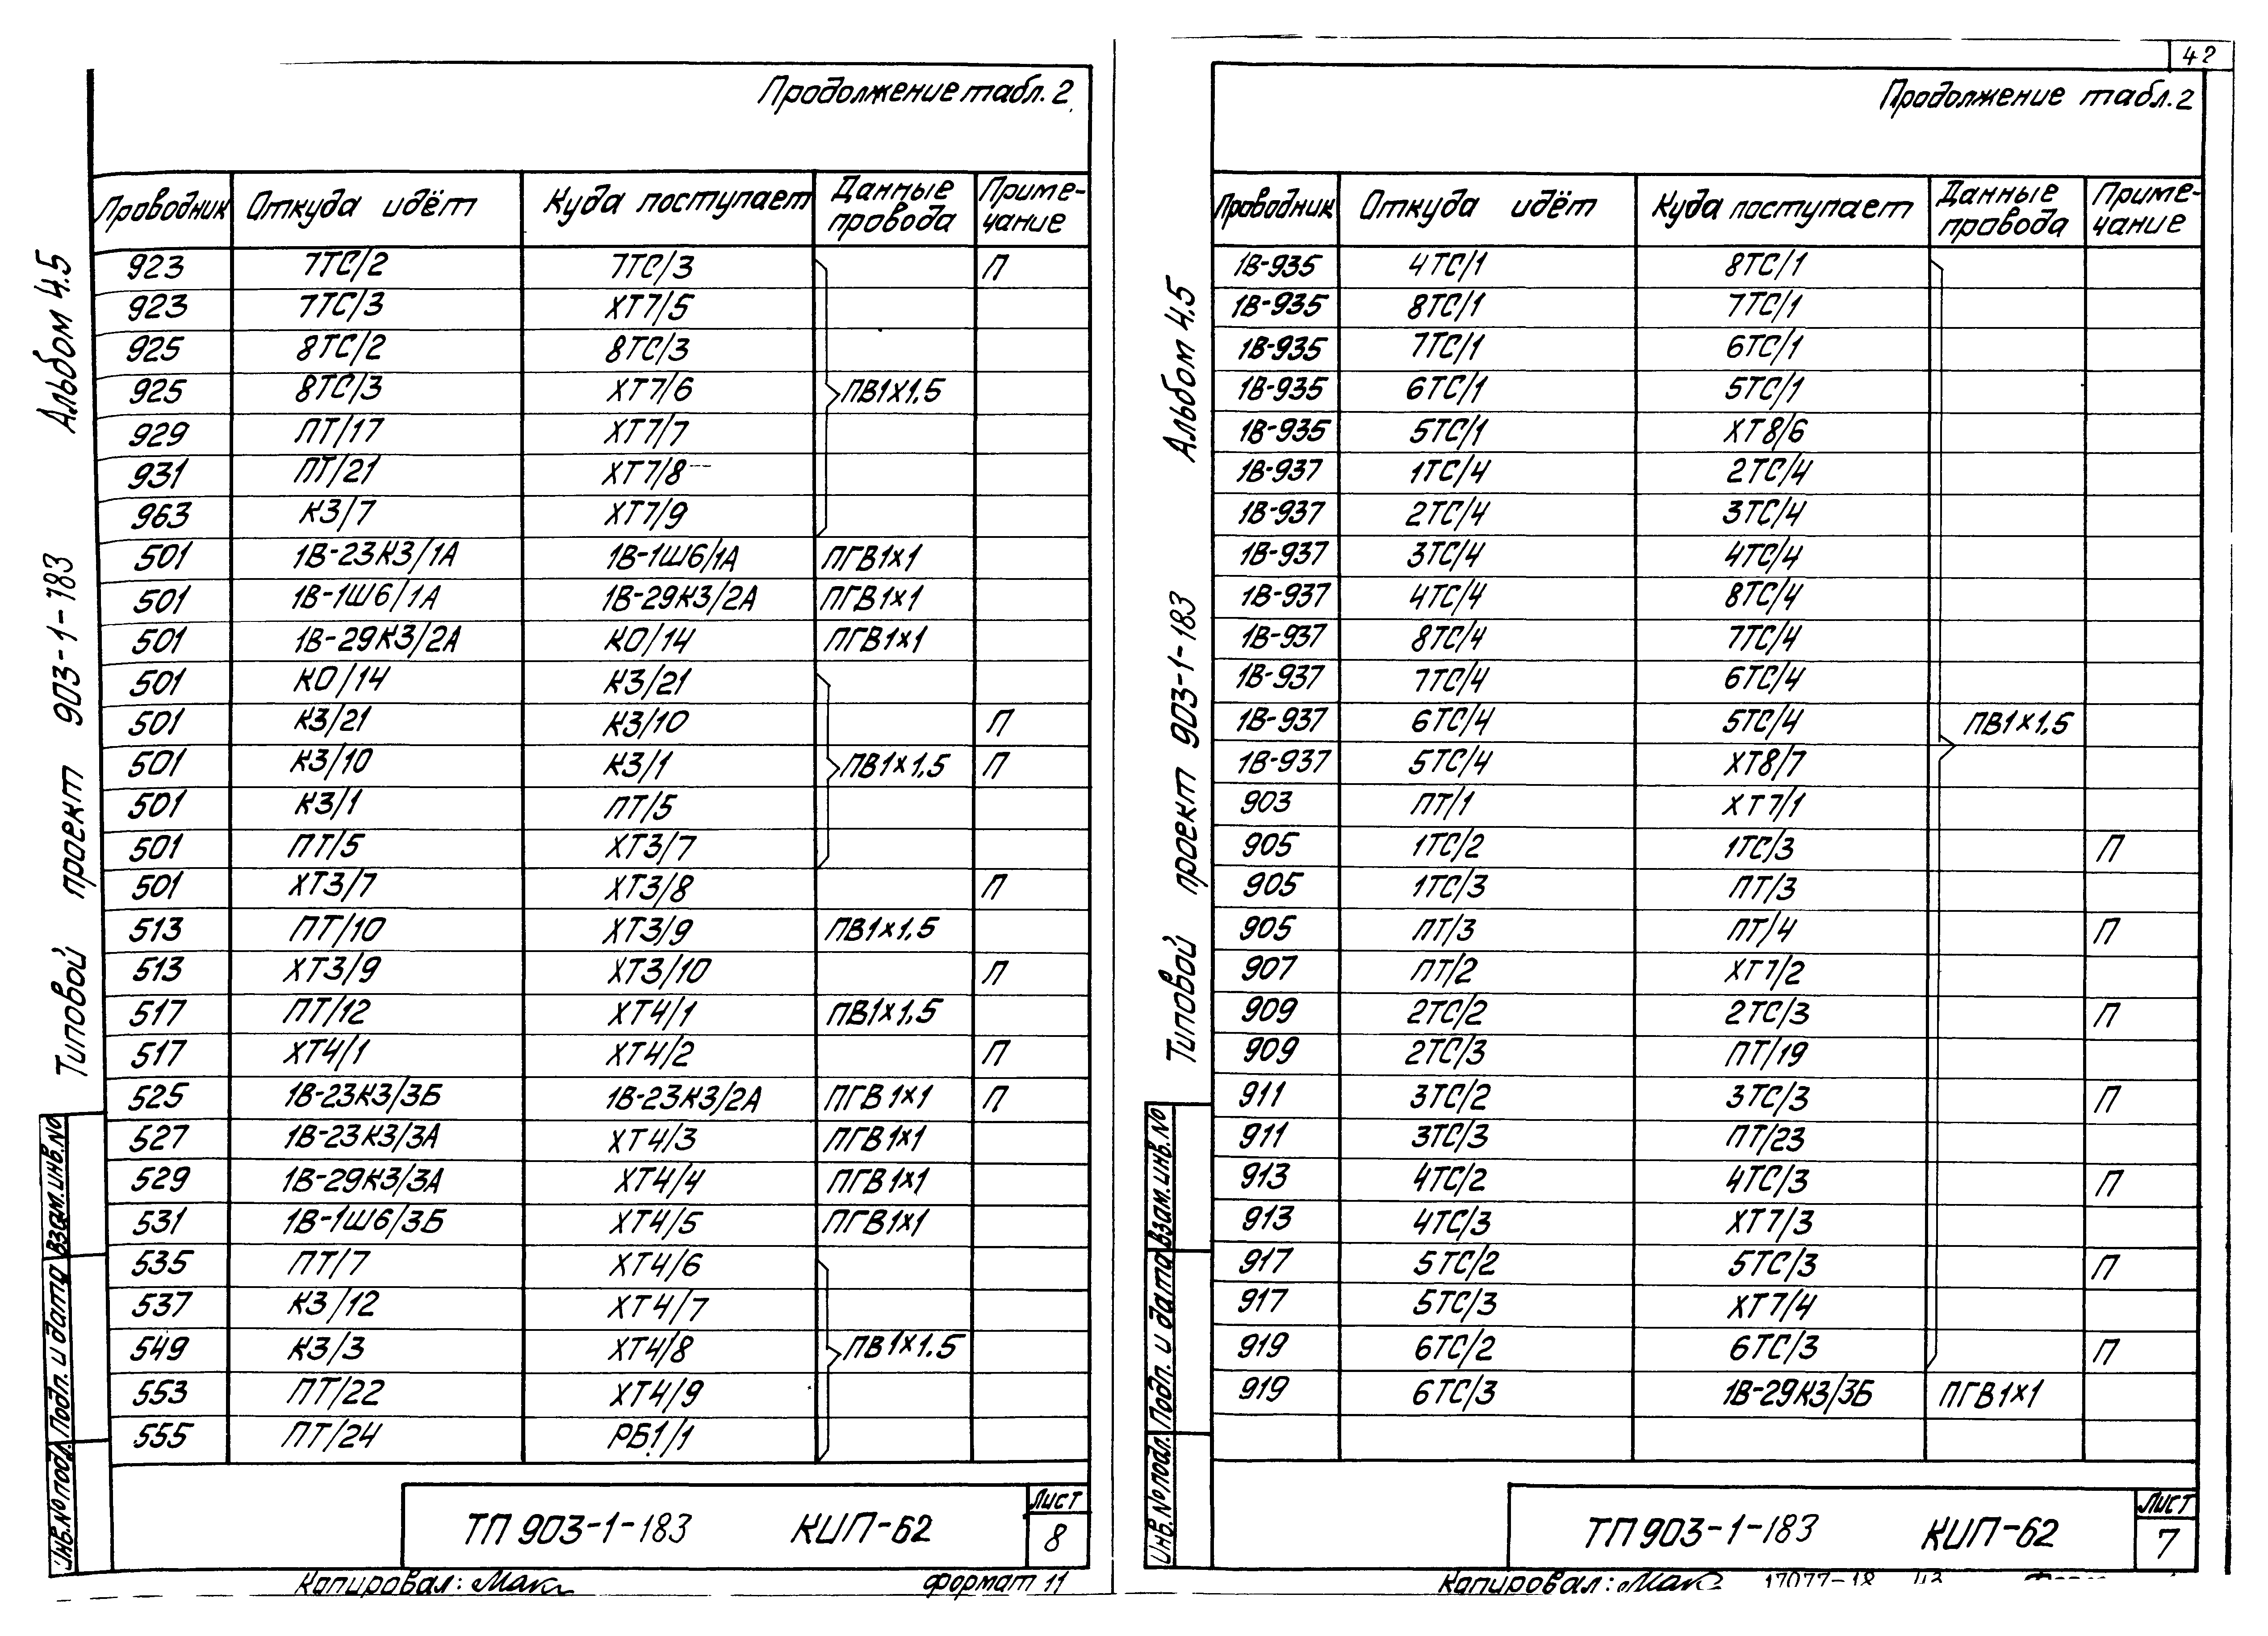 42
Продолжение табл. 2
Проводник Откуда идёт Куда поступает Данные провода Приме-чание
923 7ТС/2 7ТС/3 П
923 7ТС/3 ХТ7/5
925 8ТС/2 8ТС/3
925 8ТС/3 ХТ7/6 ПВ1х1,5
929 ПТ/17 ХТ7/7
931 ПТ/21 ХТ7/8
963 К3/7 ХТ7/9
501 1В-23К3/1А 1В-1Ш6/1А ПГВ1х1
501 1В-1Ш6/1А 1В-29К3/2А ПГВ1х1
501 1В-29К3/2А КО/14 ПГВ1х1
501 КО/14 К3/21
501 К3/21 К3/10 П
501 К3/10 К3/1 ПВ1х1,5 П
501 К3/1 ПТ/5
501 ПТ/5 ХТ3/7
501 ХТ3/7 ХТ3/8 П
513 ПТ/10 ХТ3/9 ПВ1х1,5
513 ХТ3/9 ХТ3/10 П
517 ПТ/12 ХТ4/1 ПВ1х1,5
517 ХТ4/1 ХТ4/2 П
525 1В-23К3/3Б 1В-23К3/2А ПГВ1х1 П
527 1В-23К3/3А ХТ4/3 ПГВ1х1
529 1В-29К3/3А ХТ4/4 ПГВ1х1
531 1В-1Ш6/3Б ХТ4/5 ПГВ1х1
535 ПТ/7 ХТ4/6
537 К3/12 ХТ4/7
549 К3/3 ХТ4/8 ПВ1х1.5
553 ПТ/22 ХТ4/9
555 ПТ/24 РБ1/1
ТП 903-1-183 КИП-62
Лист
8
Копировал:
формат 11
Типовой проект 903-1-183 Альбом 4.5
Инв.№ подл. Подп. и дата Взам.инв.№
Продолжение табл. 2
Проводник Откуда идёт Куда поступает Данные провода Приме-чание
1В-935 4ТС/1 8ТС/1
1В-935 8ТС/1 7ТС/1
1В-935 7ТС/1 6ТС/1
1В-935 6ТС/1 5ТС/1
1В-935 5ТС/1 ХТ8/6
1В-937 1ТС/4 2ТС/4
1В-937 2ТС/4 3ТС/4
1В-937 3ТС/4 4ТС/4
1В-937 4ТС/4 8ТС/4
1В-937 8ТС/4 7ТС/4
1В-937 7ТС/4 6ТС/4
1В-937 6ТС/4 5ТС/4 ПВ1х1,5
1В-937 5ТС/4 ХТ8/7
903 ПТ/1 ХТ7/1
905 1ТС/2 1ТС/3 П
905 1ТС/3 ПТ/3
905 ПТ/3 ПТ/4 П
907 ПТ/2 ХТ7/2
909 2ТС/2 2ТС/3 П
909 2ТС/3 ПТ/19
911 3ТС/2 3ТС/3 П
911 3ТС/3 ПТ/23
913 4ТС/2 4ТС/3 П
913 4ТС/3 ХТ7/3
917 5ТС/2 5ТС/3 П
917 5ТС/3 ХТ7/4
919 6ТС/2 6ТС/3 П
919 6ТС/3 1В-29К3/3Б ПГВ1х1
ТП 903-1-183 КИП-62
Лист
7
Копировал:
17077-18 43
Типовой проект 903-1-183 Альбом 4.5
Инв.№ подл. Подп. и дата Взам.инв.№